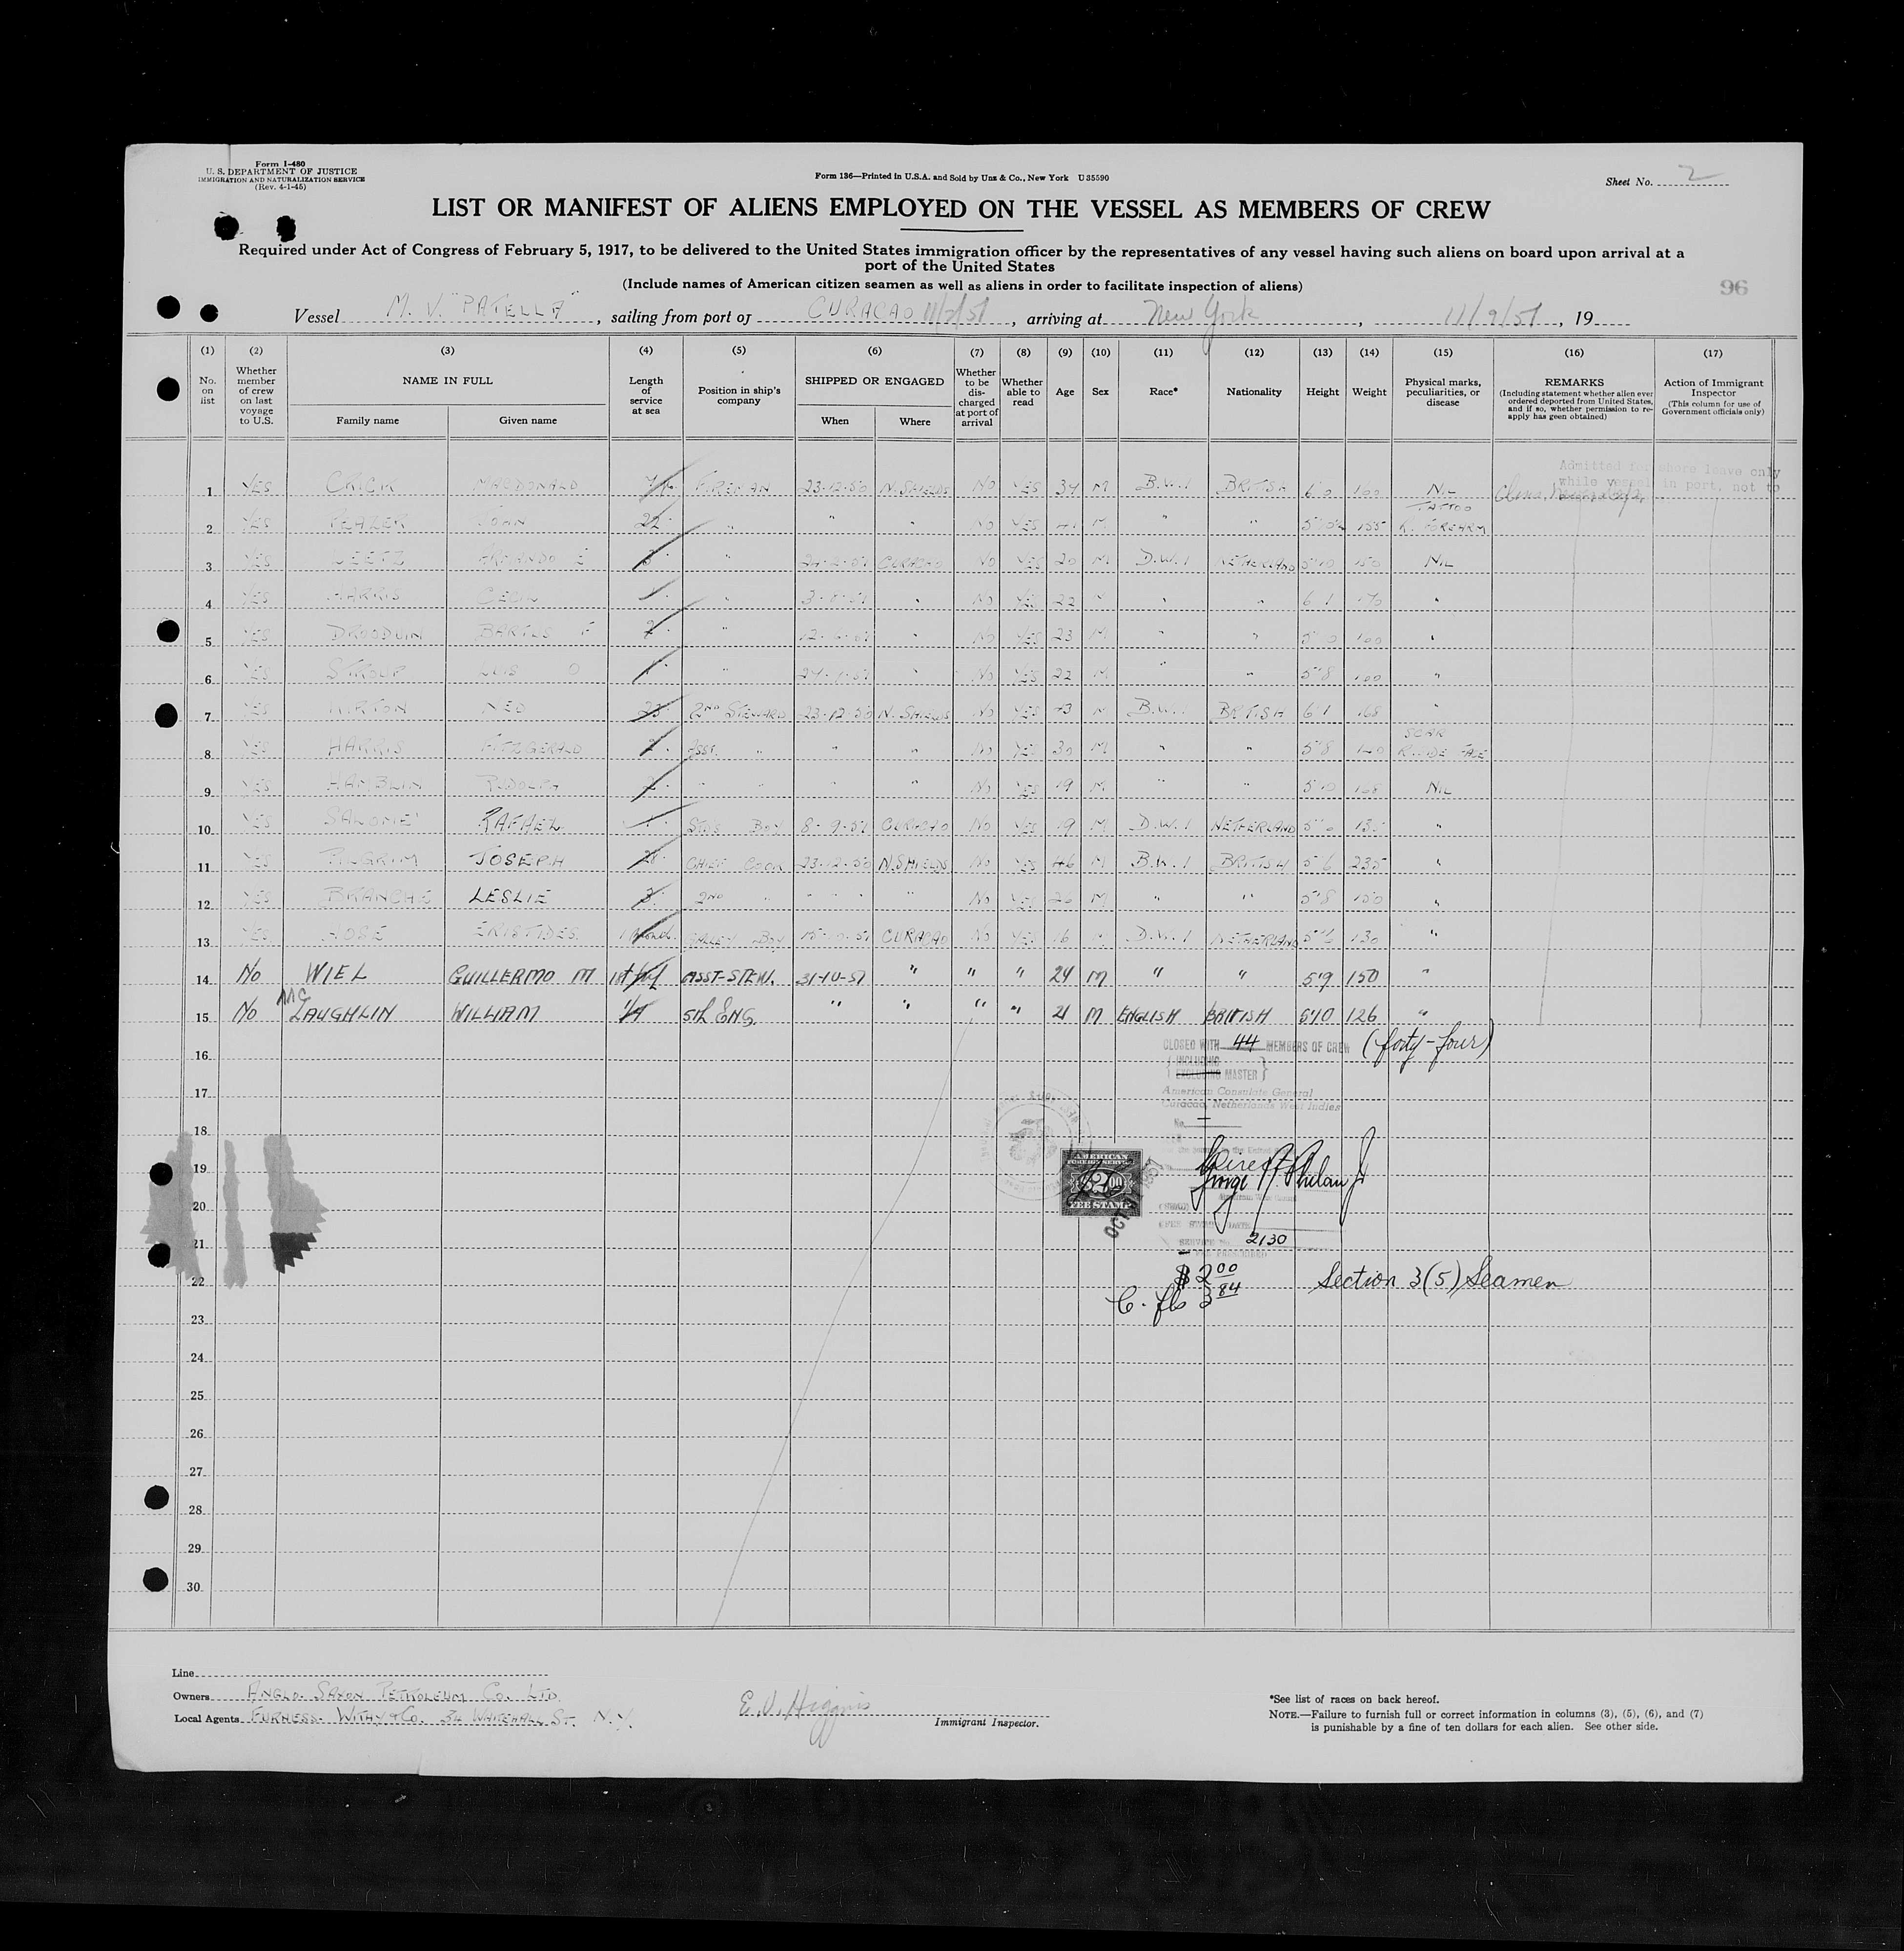 Form I-480
U. S. DEPARTMENT OF JUSTICE
IMMIGRATION AND NATURALIZATION SERVICE
(Rev. 4-1-45)
Form 136—Printed in U.S.A. and Sold by Unz & Co., New York U 35590
Sheet No. 2
LIST OR MANIFEST OF ALIENS EMPLOYED ON THE VESSEL AS MEMBERS OF CREW
Required under Act of Congress of February 5, 1917, to be delivered to the United States immigration officer by the representatives of any vessel having such aliens on board upon arrival at a
port of the United States
(Include names of American citizen seamen as well as aliens in order to facilitate inspection of aliens)
96
Vessel M. V. "PATELLA", sailing from port of CURACAO 11/2/51, arriving at New York, 11/9/51, 19
(1) (2) (3) (4) (5) (6) (7) (8) (9) (10) (11) (12) (13) (14) (15) (16) (17)
No. on list
Whether member of crew on last voyage to U.S.
NAME IN FULL
Family name
Given name
Length of service at sea
Position in ship's company
SHIPPED OR ENGAGED
When
Where
Whether to be discharged at port of arrival
Whether able to read
Age
Sex
Race*
Nationality
Height
Weight
Physical marks, peculiarities, or disease
REMARKS
(Including statement whether alien ever ordered deported from United States, and if so, whether permission to reapply has geen obtained)
Action of Immigrant Inspector
(This column for use of Government officials only)
Admitted for shore leave only
while vessel in port, not to
1 YES CRICK MACDONALD FIREMAN 23-12-50 N. SHIELDS NO YES 34 M B.W.I BRITISH 6'0 160 NIL
2 YES JOHN " " " NO YES 41 M " " 155 TATTOO R. FOREARM
3 YES ARMANDO E " CURACAO NO YES 20 M D.W.I NETHERLAND 5'10 150 NIL
4 YES HARRIS CECIL " 3-8-51 " NO YES 22 M " " 6'1 170 "
5 YES F 2 " " NO YES 23 M " " "
6 YES LUIS O " " NO YES 22 M " " 5'8 "
7 YES KIRTON NED 23 2ND STEWARD 23-12-50 N. SHIELDS NO YES 43 M B.W.I BRITISH 6'1 168 "
8 YES HARRIS FITZGERALD 2 ASST. " " " NO YES 30 M " " 5'8 SCAR R. SIDE FACE
9 YES HAMBLIN RUDOLPH 2 " " " " NO YES 19 M " " 5'10 168 NIL
10 YES SALOME RAFAEL BOY 8-9-51 CURACAO NO YES 19 M D.W.I NETHERLAND "
11 YES PILGRIM JOSEPH CHIEF COOK 23-12-50 N. SHIELDS NO YES 46 M B.W.I BRITISH 5'6 235 "
12 YES BRANCHE LESLIE 3 2ND " " " NO YES 26 M " " 5'8 150 "
13 YES JOSE ERISTIDES GALLEY BOY CURACAO NO YES 16 M D.W.I NETHERLAND 5'6 130 "
14 NO WIEL GUILLERMO M ASST-STEW. 31-10-51 " " " 24 M " " 5'9 150 "
15 NO McLAUGHLIN WILLIAM 5th ENG. " " " " 21 M ENGLISH BRITISH 5'10 126 "
16
CLOSED WITH 44 MEMBERS OF CREW (forty-four)
INCLUDING
EXCLUDING MASTER
17
American Consulate General
Curacao, Netherlands West Indies
No.
18
19
AMERICAN
FOREIGN SERVICE
$2.00
FEE STAMP
OCT
George Phelan Jr
20
21
SERVICE No. 2130
FEE PRESCRIBED
22
$ 2.00
Section 3(5) Seamen
C. fls 3.84
23
24
25
26
27
28
29
30
Line
Owners ANGLO SAXON PETROLEUM CO. LTD.
Local Agents FURNESS WITHY & CO. 34 WHITEHALL ST. N.Y.
E. V. Higgins
Immigrant Inspector.
*See list of races on back hereof.
NOTE.—Failure to furnish full or correct information in columns (3), (5), (6), and (7)
is punishable by a fine of ten dollars for each alien. See other side.